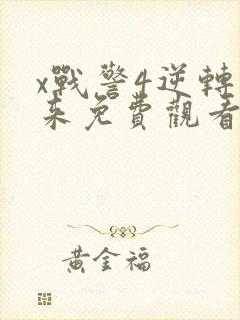 x戰警4逆轉
來免費觀看
黃金福